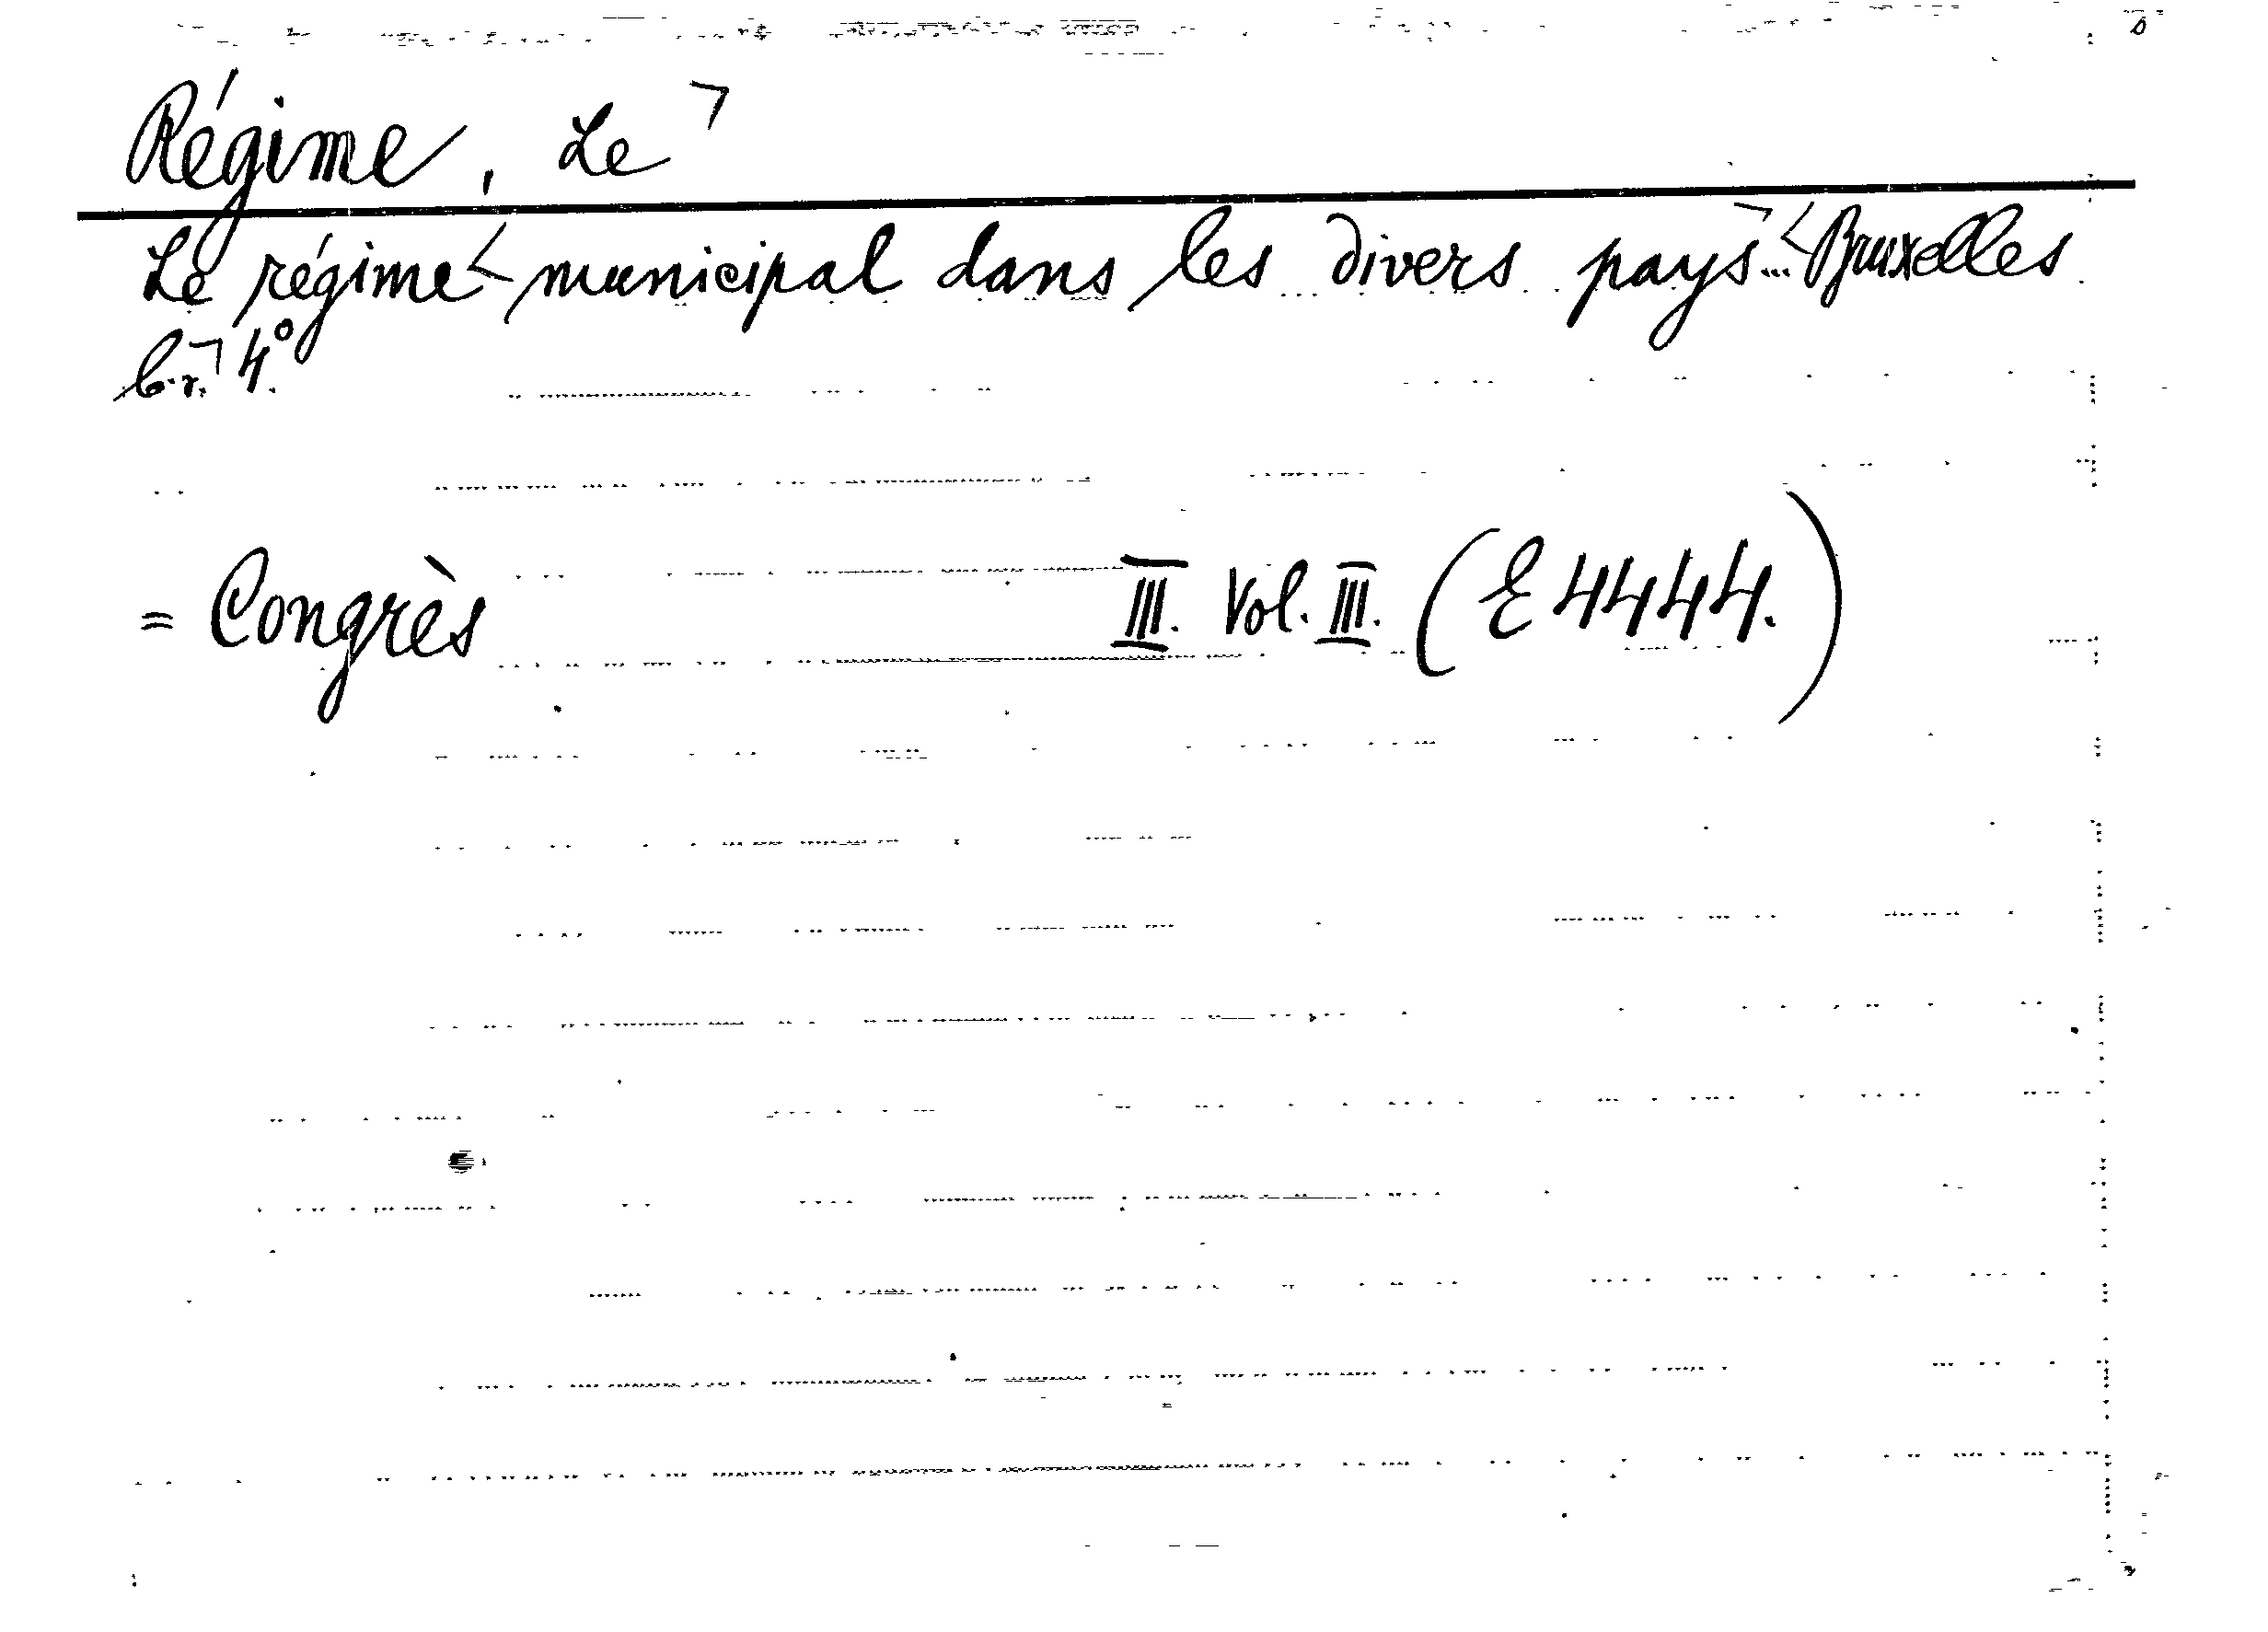 Régime, Le ¬
Le régime municipal dans les divers pays ... Bruxelles
b.r. 4°.
= Congrès III. Vol. III. (E 4444.)